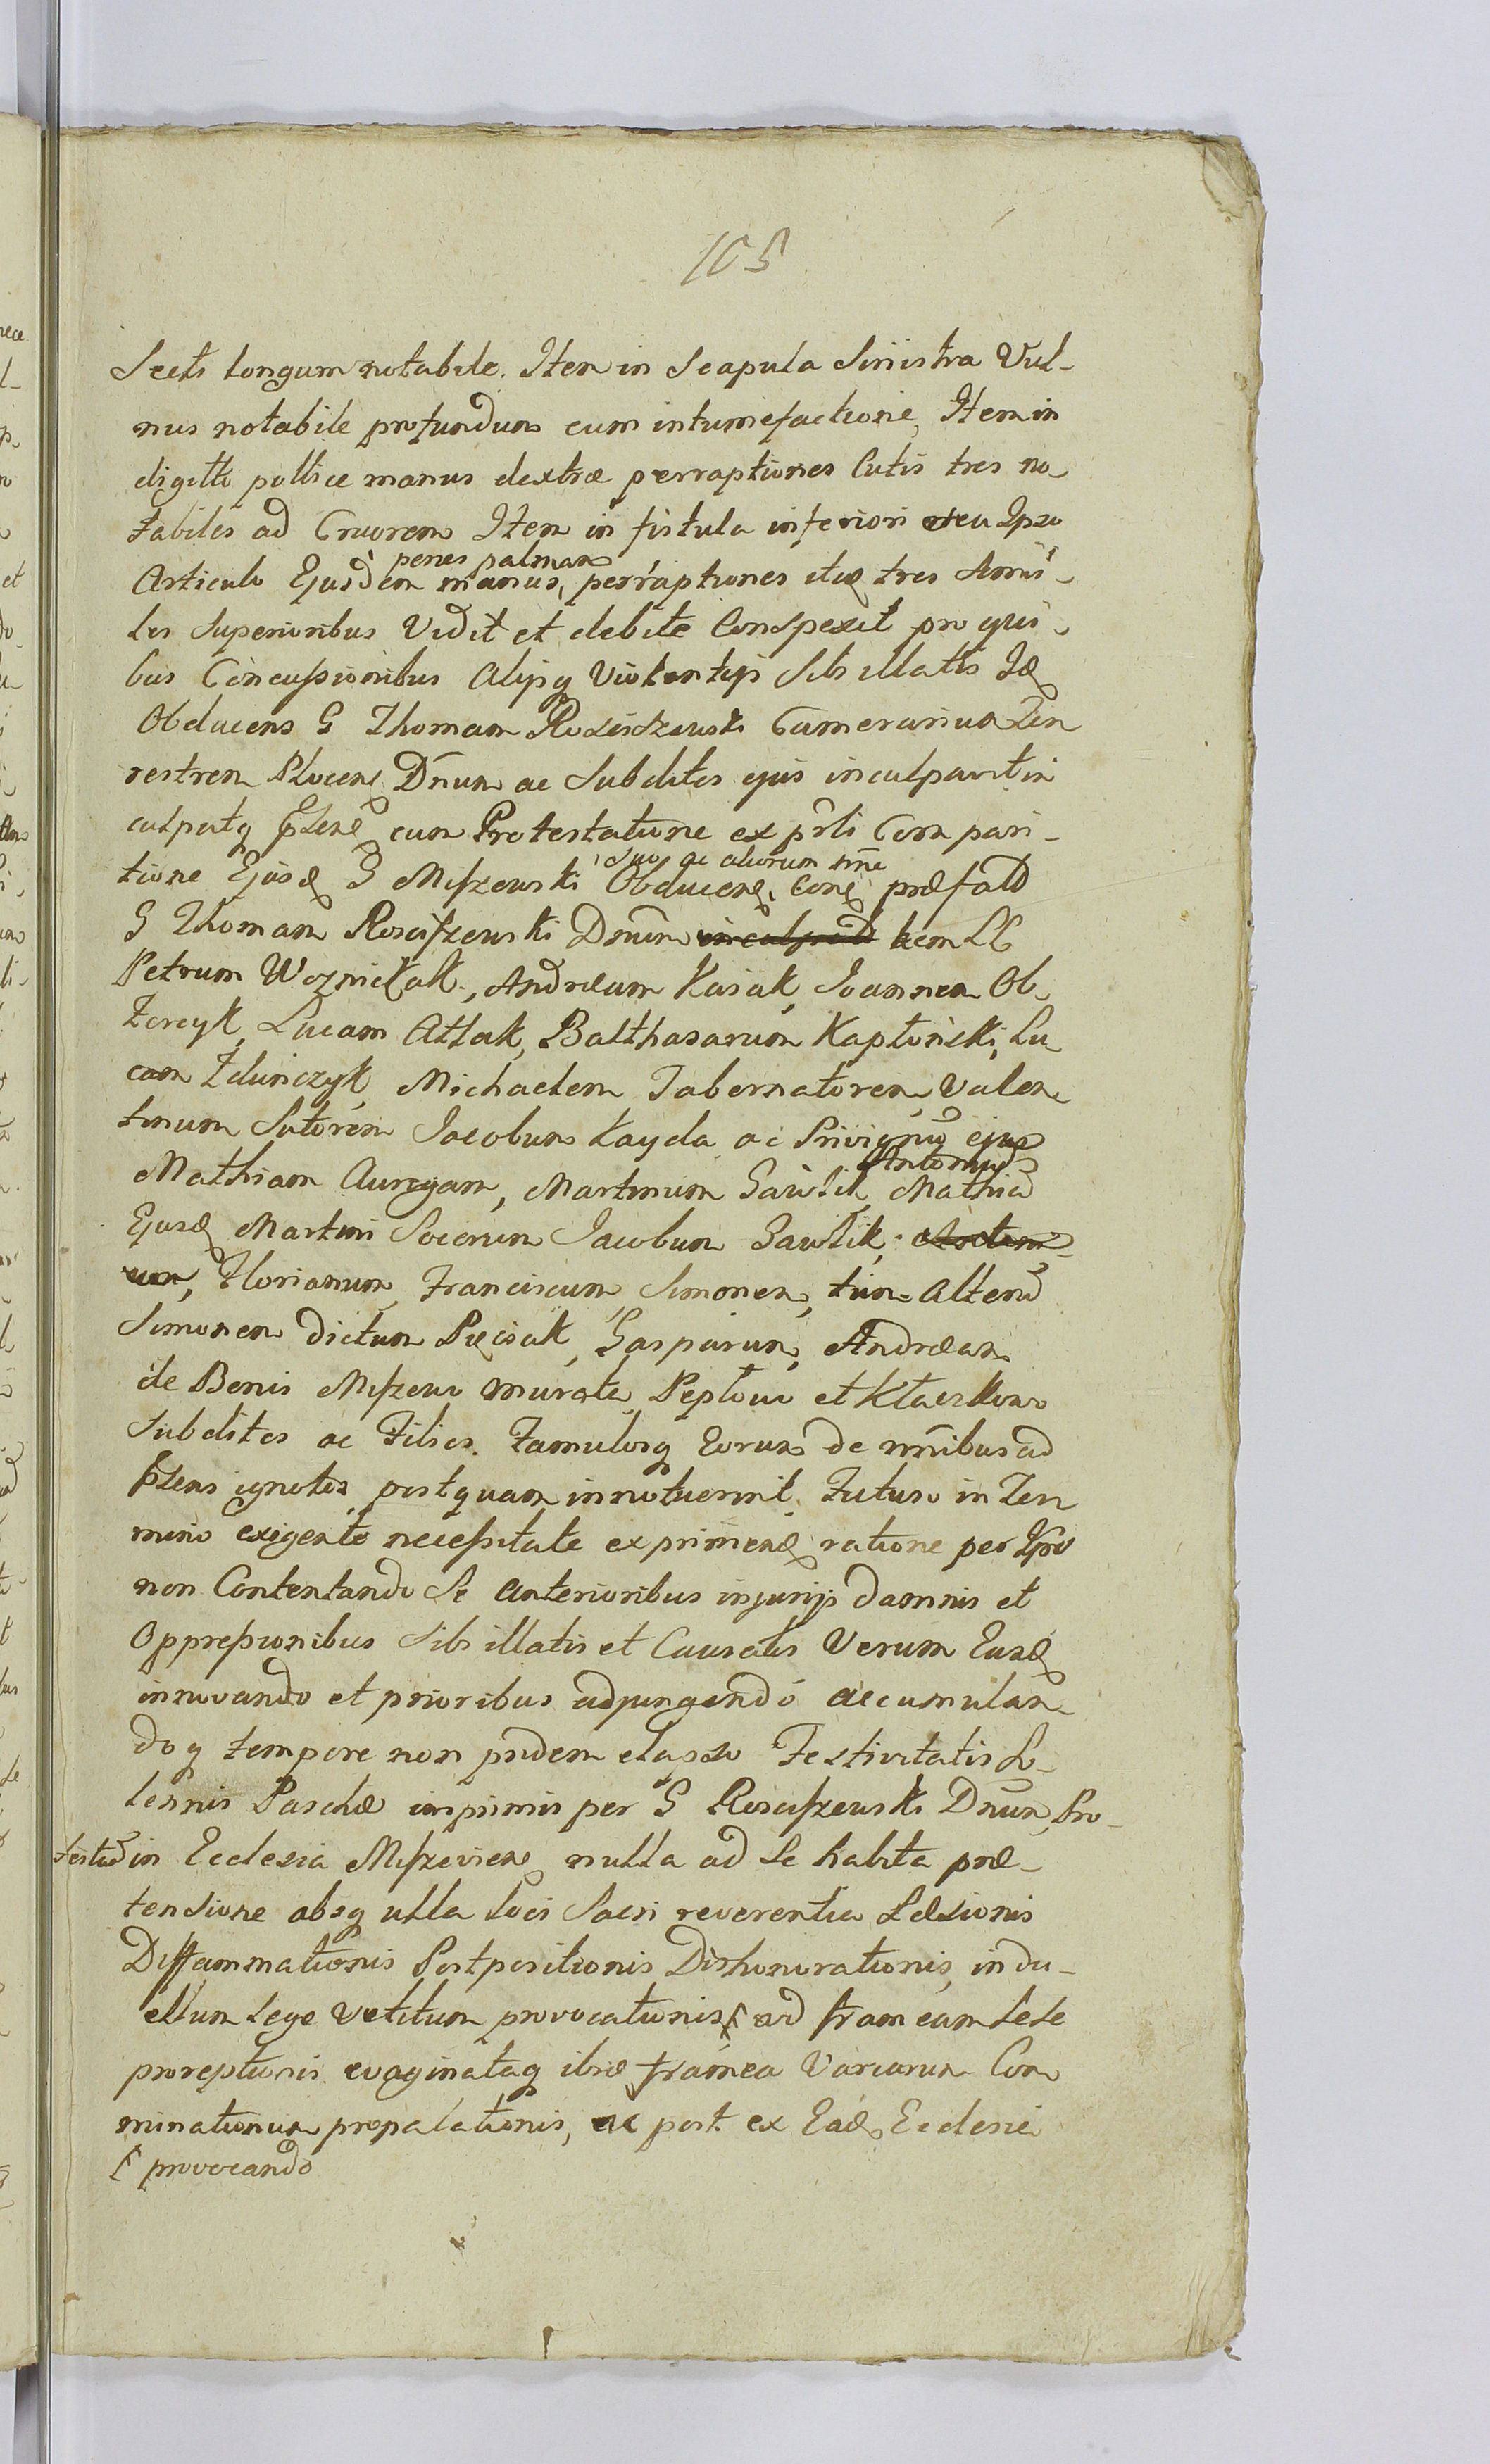 105
Secti longum notabile. Item in Scapula Sinistra Vul-
nus notabile profundum cum intumefactione, Item in
digitti pollice manus dextræ perraptiones Cutis tres no
tabiles ad Cruorem Item in fistula inferiori seu Ipso
penes palmam
Articulo Ejusdem manus, perraptiones itid tres simi-
les superioribus Vidit et debite Conspexit pro qui-
bus Concussionibus Alijsq Violentijs Sibi illatis Id
Obducens G Thomam Rosciszewski Camerarium Ter
restrem Plocen Dnum ac Subditos ejus inculpavit in
culpatq Psens cum Protestatione ex psti Compari-
suo ac aliorum nne
tione Ejusd G Miszewski Obducens Con præfatum
G Thomam Rosciszewski Dnum inculpatum nem LL
Petrum Wozniczak, Andream Kasiak, Joannem Ob-
zerczyk Lucam Attak, Balthasarum Kaplonski, Lu
cam Zdunczyk Michaelem Tabernatorem, Valen
tinum Sutorem Jacobum Kayda ac Privignum ejus
Antonium
Mathiam Aurigam, Martinum Gawlik, Mathiam
Ejusd Martini Socerum Jacobum Gawlik, Antoni-
um, Florianum, Franciscum Simonem, tum Alterum
Simonem dictum Pięciak, Gasparum, Andream
de Bonis Miszewo murate Peplowo et Kłaczkowo
Subditos ac Filios. Famulosq Eorum de nnibus ad
psens ignotos, postquam innotuerint. Futuro in Ter
mino exigente necessitate exprimend ratione per Ipso
non Contentando Se anterioribus injurijs damnis et
Oppressionibus Sibi illatis et Causatis Verum Easd
innovando et prioribus adjungendo accumulan-
doq tempore non pridem elapso Festivitatis So-
lennis Paschæ inprimis per G Rosciszewski Dnum, Pro-
testum in Ecclesia Miszevien nulla ad Se habita præ-
tensione absq ulla loci Sacri reverentia Læsionis
Diffammationis Postpositionis Dishonorationis, in du-
ellum lege vetitum provocationis, ad frameam Sese
proreptionis evaginataq ibid framea Variarum Com
minationum propalationis, ac post ex Ead Ecclesia
provocando